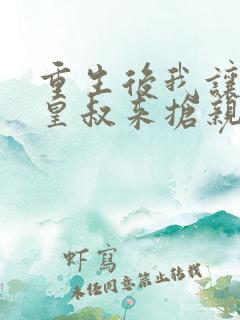 重生後我讓
皇叔來搶親
虾寫
未经同意禁止转载